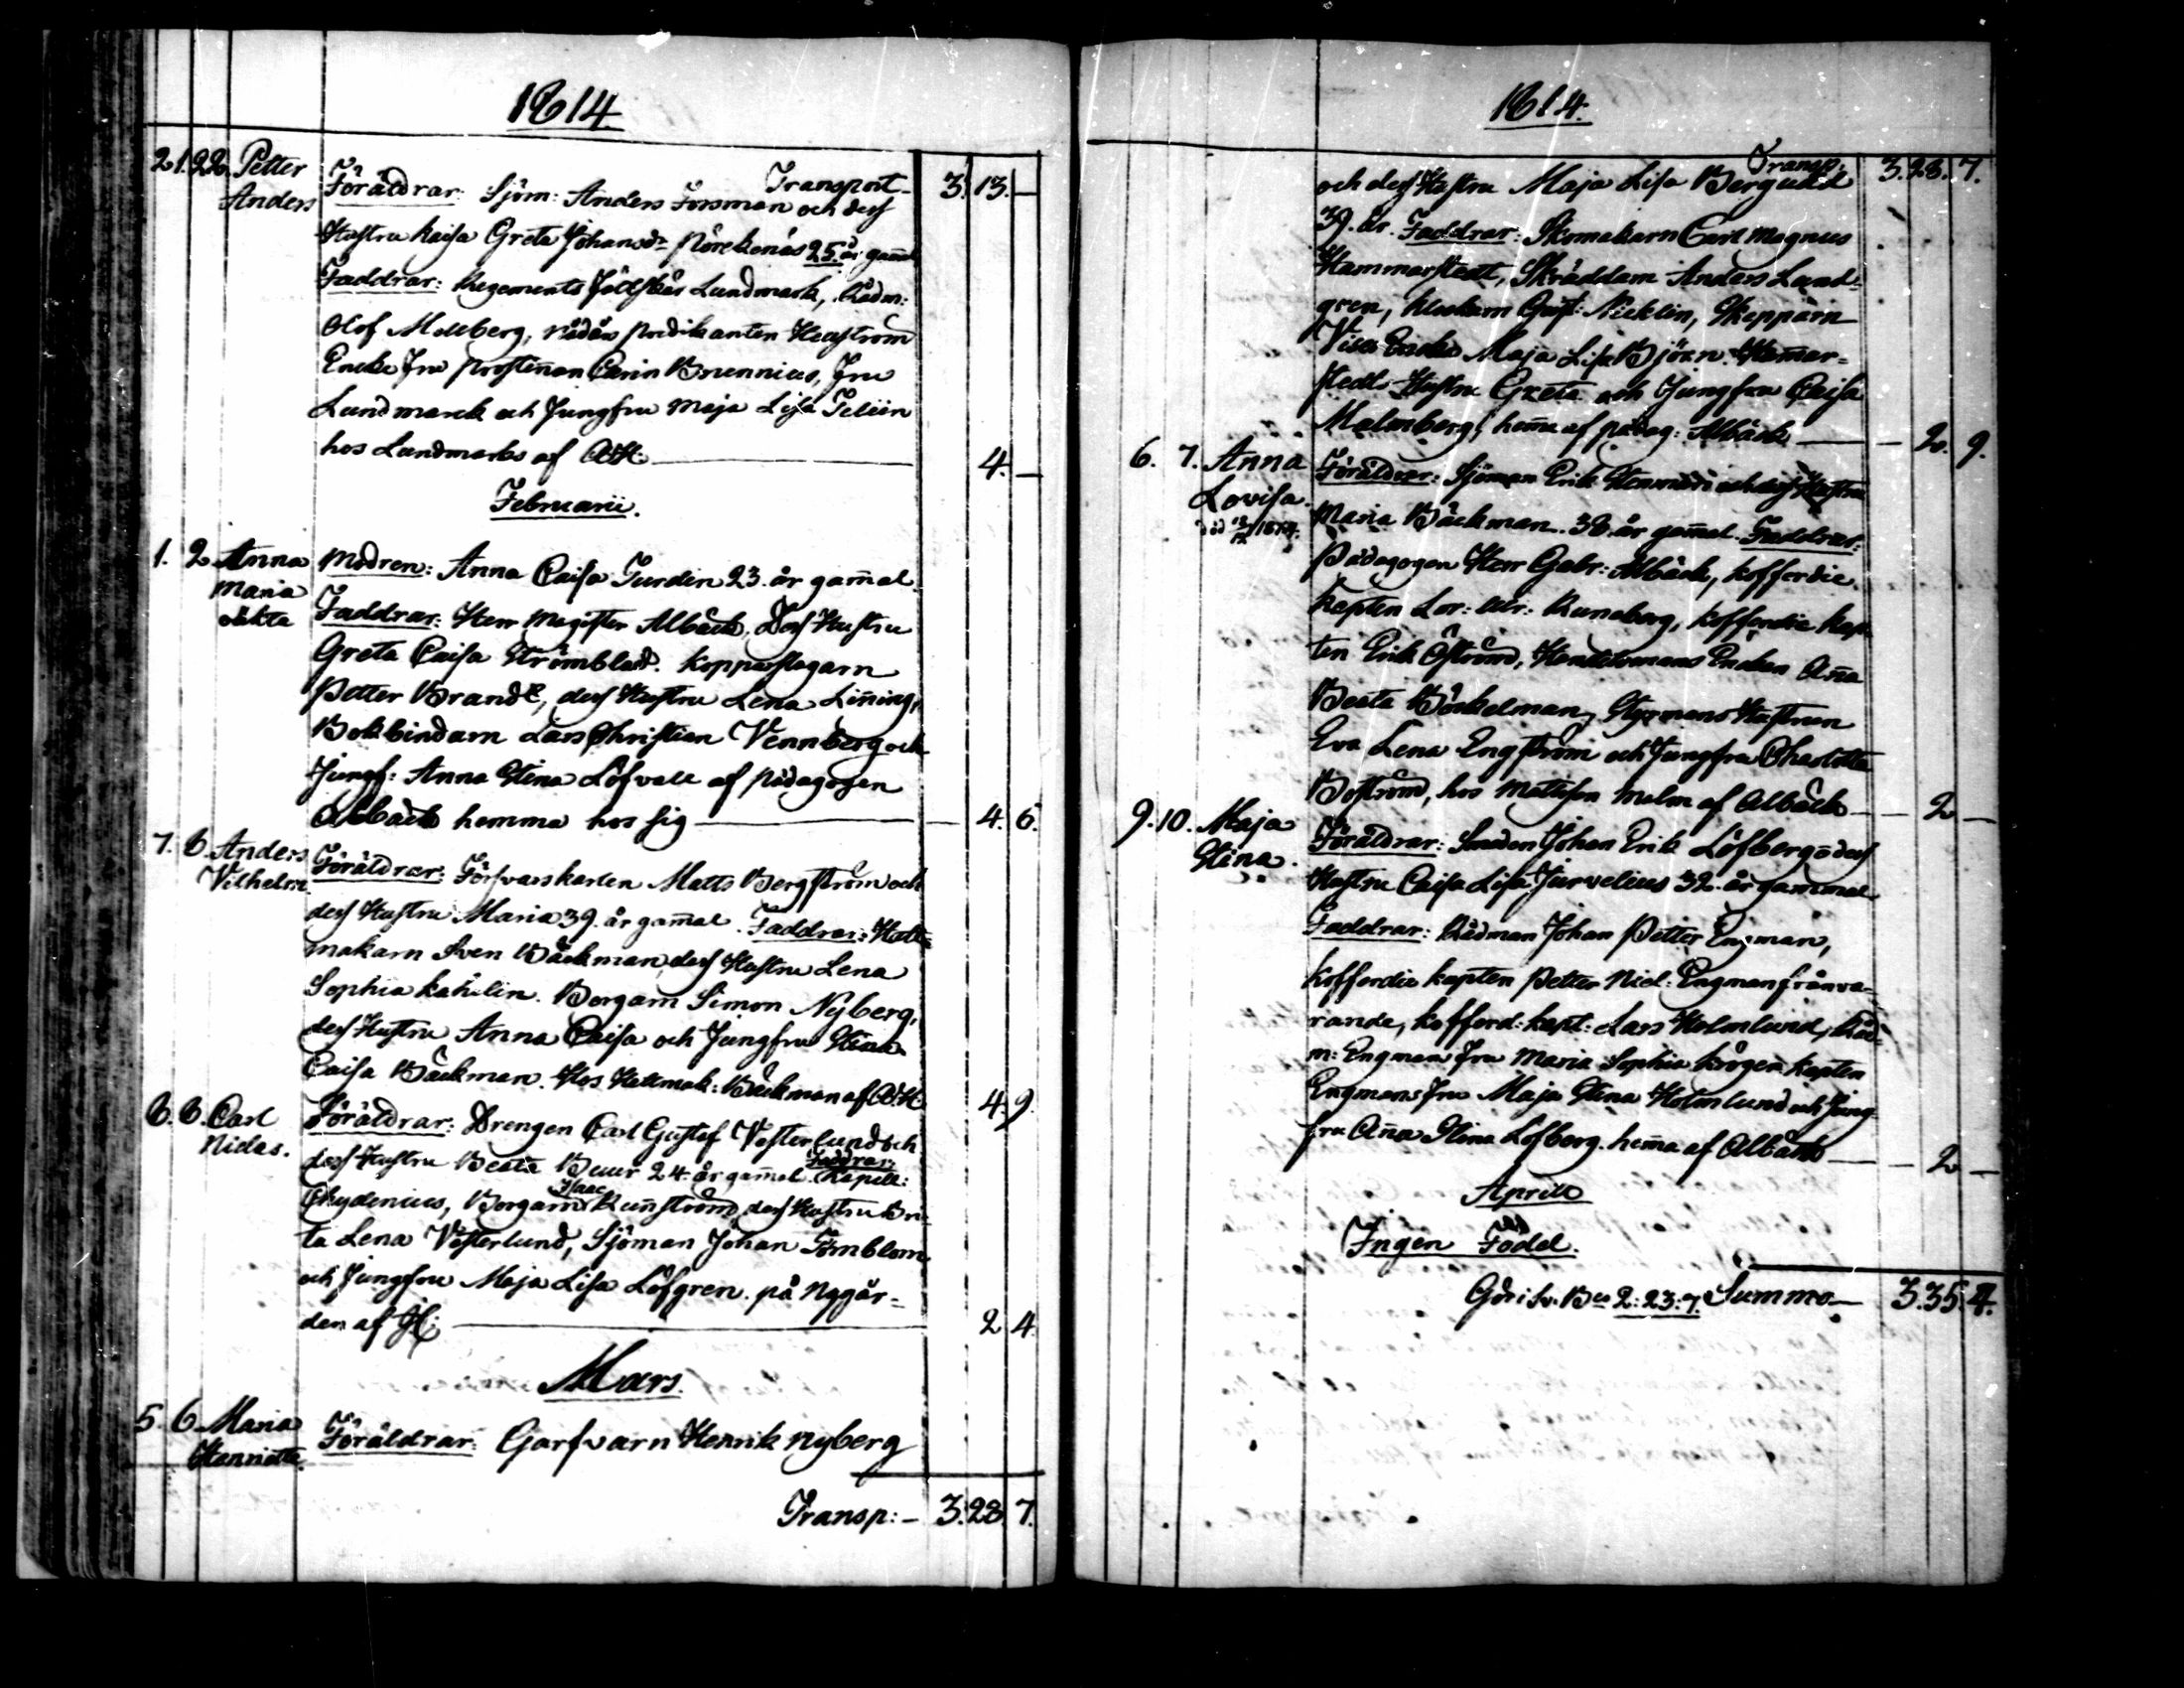 1814.
21. 22. Petter Anders
Transport 3. 13. —
Föräldrar: Sjöm: Anders Forsman och dess
Hustru Kaisa Greta Johansdr 25. år gam̄al
Faddrar: Regements Fältskär Lundmark, Rådm:
Olof Mollberg, predikanten Heurström
Enke Fru Prostinnan Carin Brunnius, Fru
Lundmarck och Jungfru Maja Lisa Telén
hos Lundmarks af AH: — 4. —
Februarii.
1. 2. Anna Maria oäkta
Modren: Anna Caisa Turdin 23. år gam̄al.
Faddrar: Herr Magister Albäck, Dess Hustru
Greta Caisa Strömblad. Kopparslagarn
Petter Brandt, dess Hustru Lena Lin̄ing,
Bokbindarn Lars Christian Vennberg och
Jungf: Anna Stina Löfvall af Pädagogen
Albäck hemma hos sig — 4. 6.
7. 8. Anders Vilhelm.
Föräldrar: Försvarskarlen Matts Bergström och
dess Hustru Maria 39. år gam̄al. Faddrar: Hatt-
makarn Sven Bäckman, dess Hustru Lena
Sophia Kahelin. Borgarn Simon Nyberg,
dess Hustru Anna Caisa och Jungfru Stina
Caisa Bäckman. Hos Hattmak: Bäckman af AH 4. 9.
8. 8. Carl Niclas.
Föräldrar: Drengen Carl Gustaf Vesterlund och
dess Hustru Beata Buur 24. år gam̄al. Faddrar: Kapell:
Chydenius, Borgarn Isaac Run̄ström, dess Hustru Bri-
ta Lena Vesterlund, Sjöman Johan Törnblom
och Jungfru Maja Lisa Löfgren. på Nygår-
den af H: — 2 4.
Mars.
5. 6. Maria Henrietta.
Föräldrar: Garfvarn Henrik Nyberg
Transp: — 3. 28. 7.
1814.
Transp. 3. 28. 7.
och dess Hustru Maja Lisa Berglund
39. år. Faddrar: Skomakarn Carl Magnus
Hammarstedt, Skräddarn Anders Lund-
gren, Klockarn Gust: Nicklin, Skepparn
Enka Maja Lisa Björn. Ham̄ar-
stedts Hustru Greta och Jungfru Caisa
Malmberg, hem̄a af pädag: Albäck — 2. 9.
6. 7. Anna Lovisa.
1814.
Föräldrar: Sjöman Erik och dess Hustru
Maria Bäckman. 38. år gam̄al. Faddrar:
Pädagogen Herr Gabr: Albäck, Kofferdie
Kapten Lor: Ulr: Runeberg, Kofferdie Kap-
ten Erik Öström, Handelsmans Enkan An̄a
Beata Böckelman, Styrmans Hustrun
Eva Lena Engström och Jungfru Charlotta
Boström, hos Malm af Albäck — 2 —
9. 10. Maja Stina.
Föräldrar: Smeden Johan Erik Löfberg o dess
Hustru Caisa Lisa Jurvelius 32. år gammal
Faddrar: Rådman Johan Petter Engman,
Kofferdie kapten Petter Nicl: Engman frånva-
rande, Kofferd: kapt: Lars Holmlund, Råd-
m: Engmans Fru Maria Sophia Krögen Kapten
Engmans Fru Maja Stina Holmlund och Jung-
fru An̄a Stina Löfberg. hem̄a af Albäck — 2 —
Aprill
Ingen Född.
Gör i Sv. Bco 2: 23: 7. Summa — 3. 35. 4.